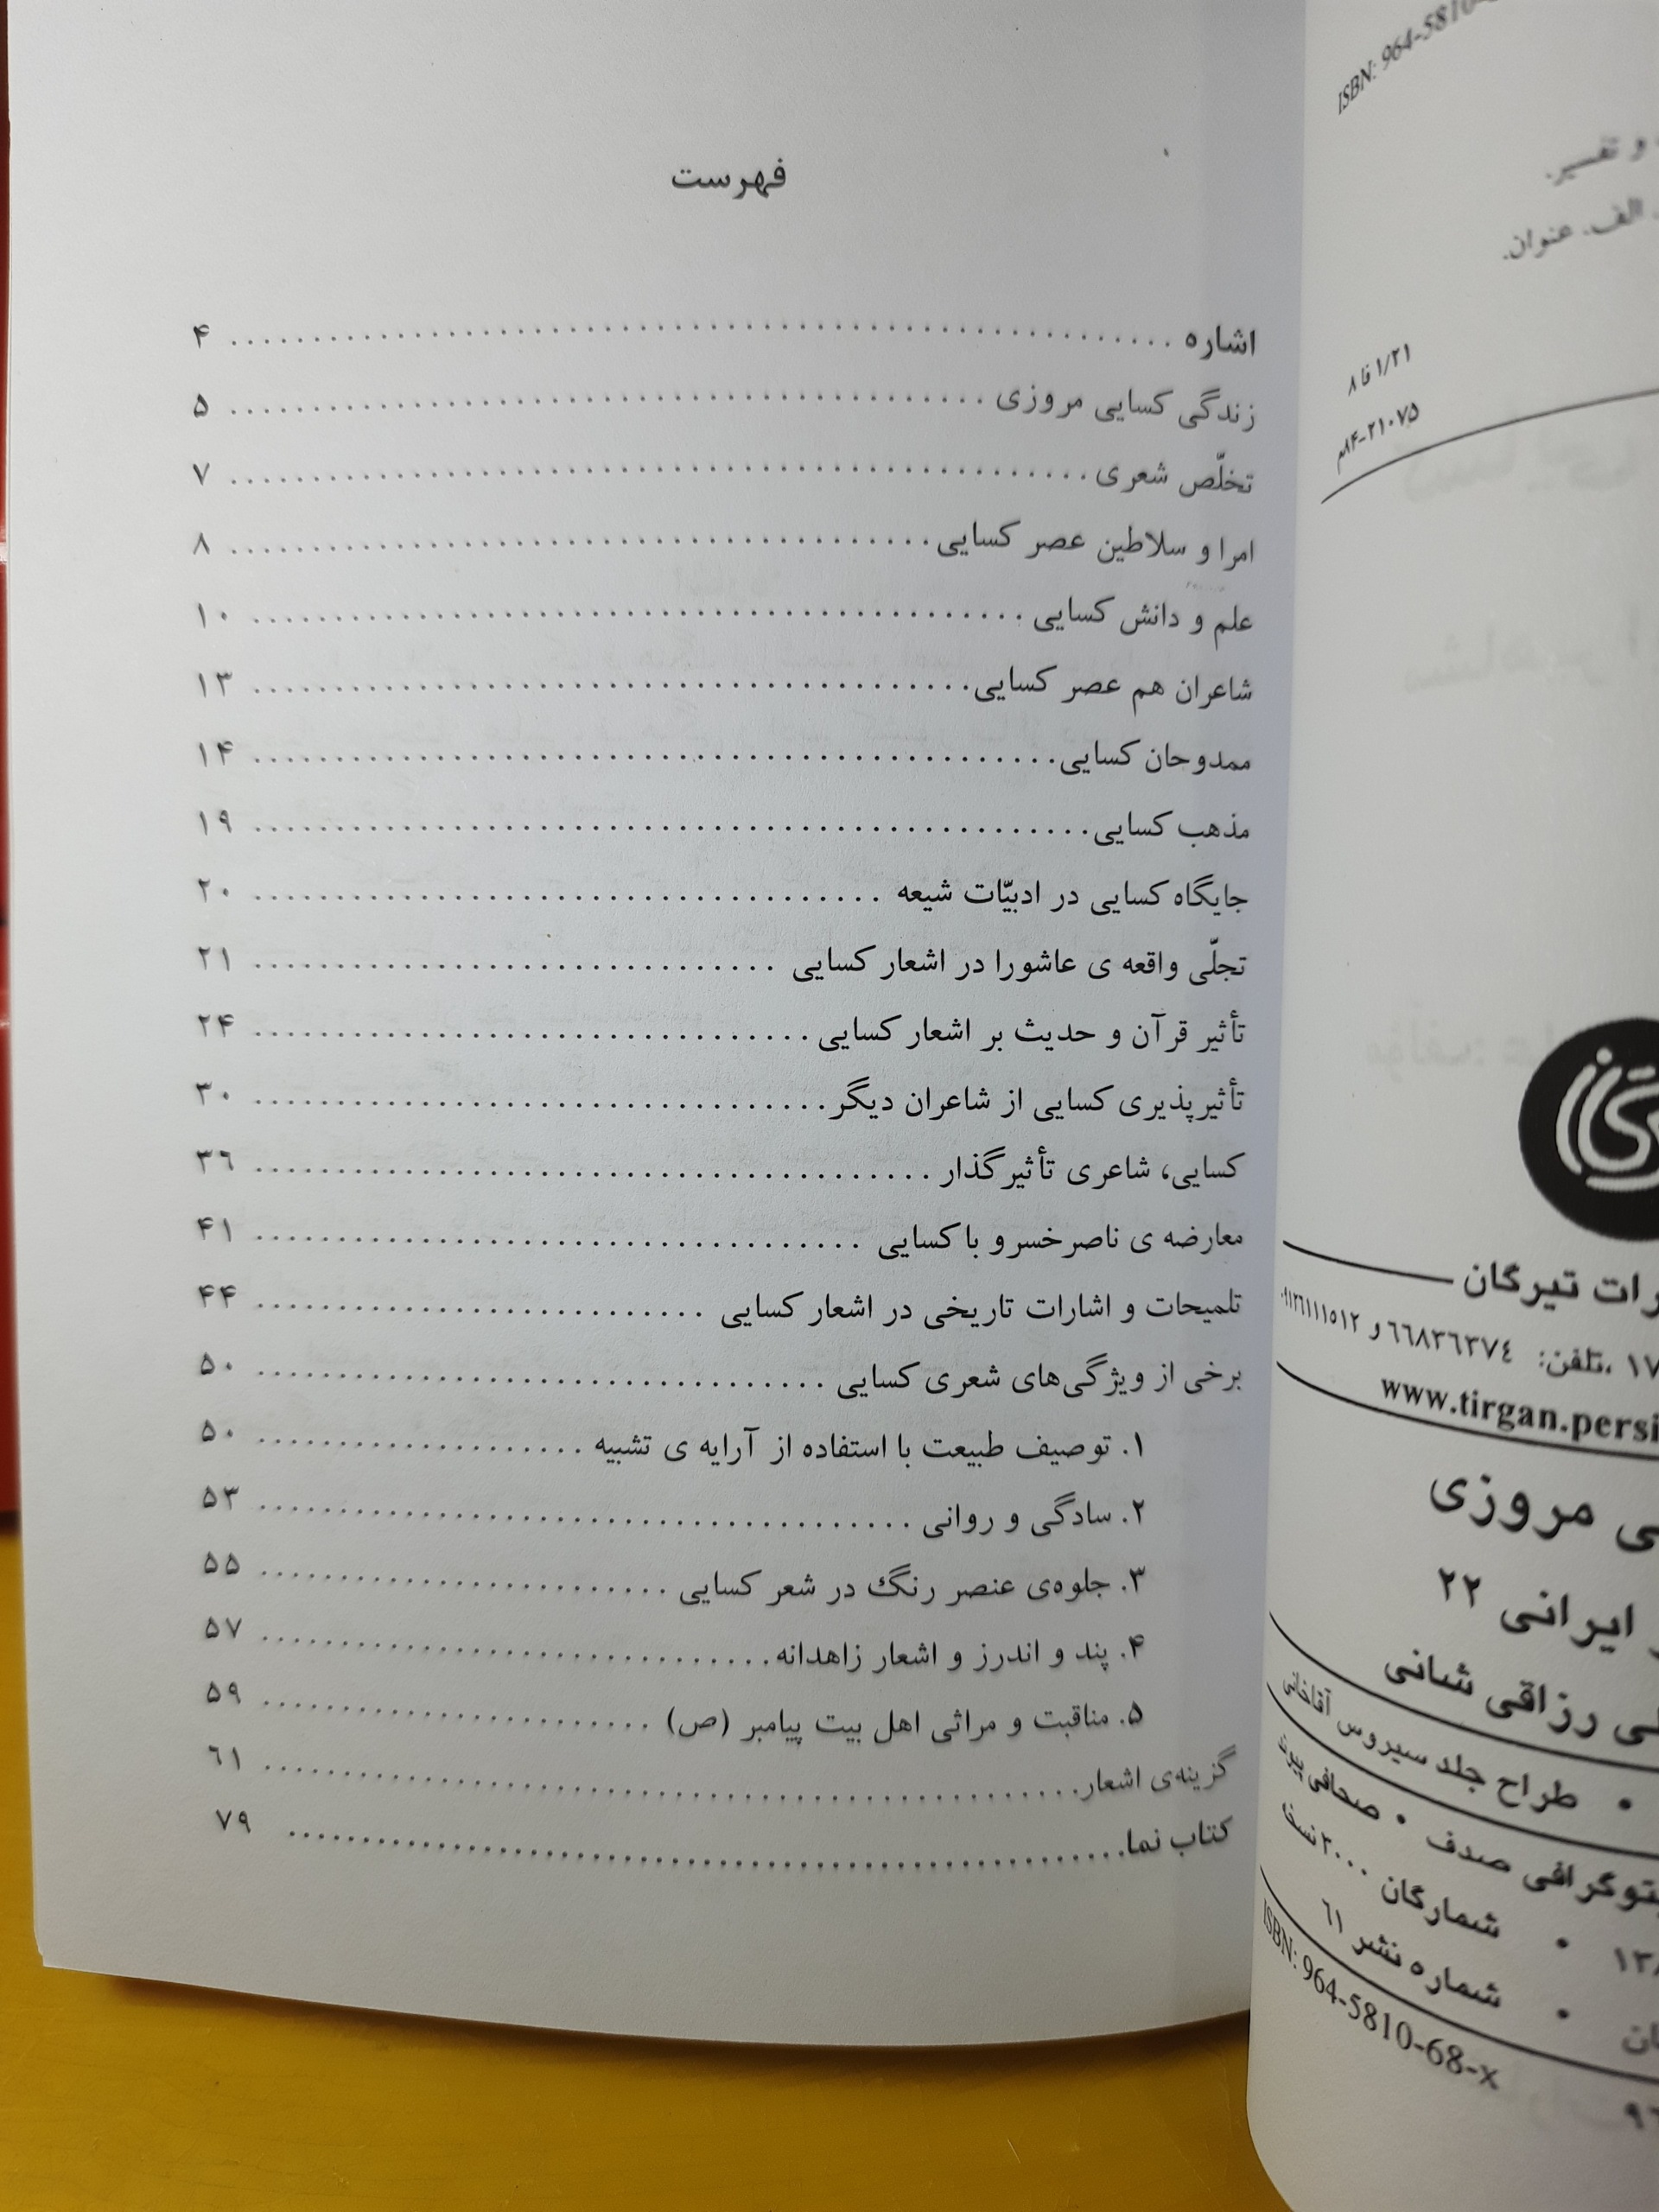 ISBN: 964-5810-
و تفسیر.
الف. عنوان.
۸ فا ۱/۲۱
۲۱۰۷۵-۸۴م
تیرگان
تلفن: ٦٦٨٣٦٣٧٤ و ٠٩١٣٦١١١٥١٢
www.tirgan.persi
مروزی
ایرانی ۲۲
رزاقی شانی
طراح جلد سیروس آقاخانی
صدف • صحافی
• شمارگان ۲۰۰۰
• شماره نشر ٦١
ISBN: 964-5810-68-x
فهرست
اشاره ........ ۴
زندگی کسایی مروزی ........ ۵
تخلّص شعری ........ ۷
امرا و سلاطین عصر کسایی ........ ۸
علم و دانش کسایی ........ ۱۰
شاعران هم عصر کسایی ........ ۱۳
ممدوحان کسایی ........ ۱۴
مذهب کسایی ........ ۱۹
جایگاه کسایی در ادبیّات شیعه ........ ۲۰
تجلّی واقعه ی عاشورا در اشعار کسایی ........ ۲۱
تأثیر قرآن و حدیث بر اشعار کسایی ........ ۲۴
تأثیرپذیری کسایی از شاعران دیگر ........ ۳۰
کسایی، شاعری تأثیرگذار ........ ۳٦
معارضه ی ناصرخسرو با کسایی ........ ۴۱
تلمیحات و اشارات تاریخی در اشعار کسایی ........ ۴۴
برخی از ویژگی‌های شعری کسایی ........ ۵۰
۱. توصیف طبیعت با استفاده از آرایه ی تشبیه ........ ۵۰
۲. سادگی و روانی ........ ۵۳
۳. جلوه‌ی عنصر رنگ در شعر کسایی ........ ۵۵
۴. پند و اندرز و اشعار زاهدانه ........ ۵۷
۵. مناقبت و مراثی اهل بیت پیامبر (ص) ........ ۵۹
گزینه‌ی اشعار ........ ٦۱
کتاب نما ........ ۷۹